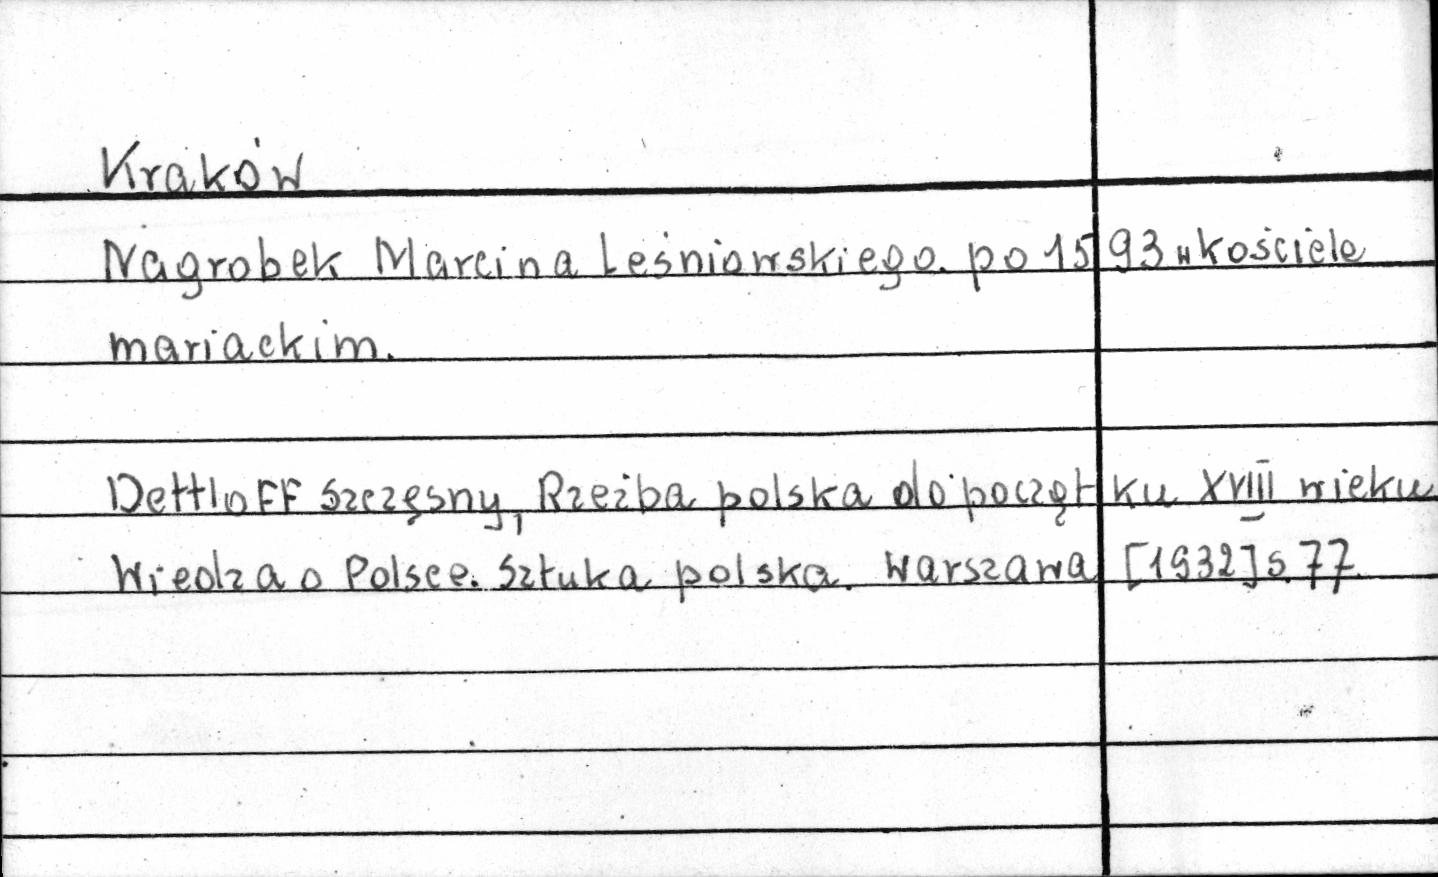 Kraków
Nagrobek Marcina Leśniowskiego. po 1593 w kościele
mariackim.
Dettloff Szczęsny, Rzeźba polska do początku XVIII wieku
Wiedza o Polsce. Sztuka polska. Warszawa [1932] s. 77.